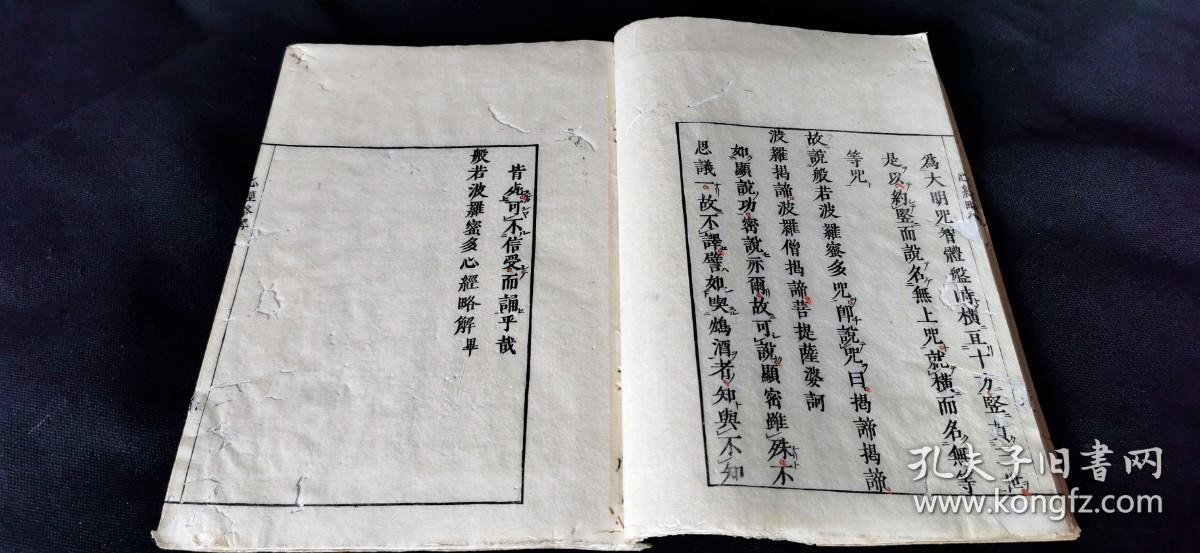 為大明咒智體鑑時橫亙十方竪
是以約竪而說名無上咒就橫而名無等
等咒
故說般若波羅蜜多咒卽說咒曰揭諦揭諦
波羅揭諦波羅僧揭諦菩提薩婆訶
如顯說功密說亦爾故可說顯密雖殊不
思議一故不譯譬如喫鴆酒者知與不知
皆死可不信受而誦乎哉
般若波羅蜜多心經略解畢
心經略解
孔夫子旧书网
www.kongfz.com